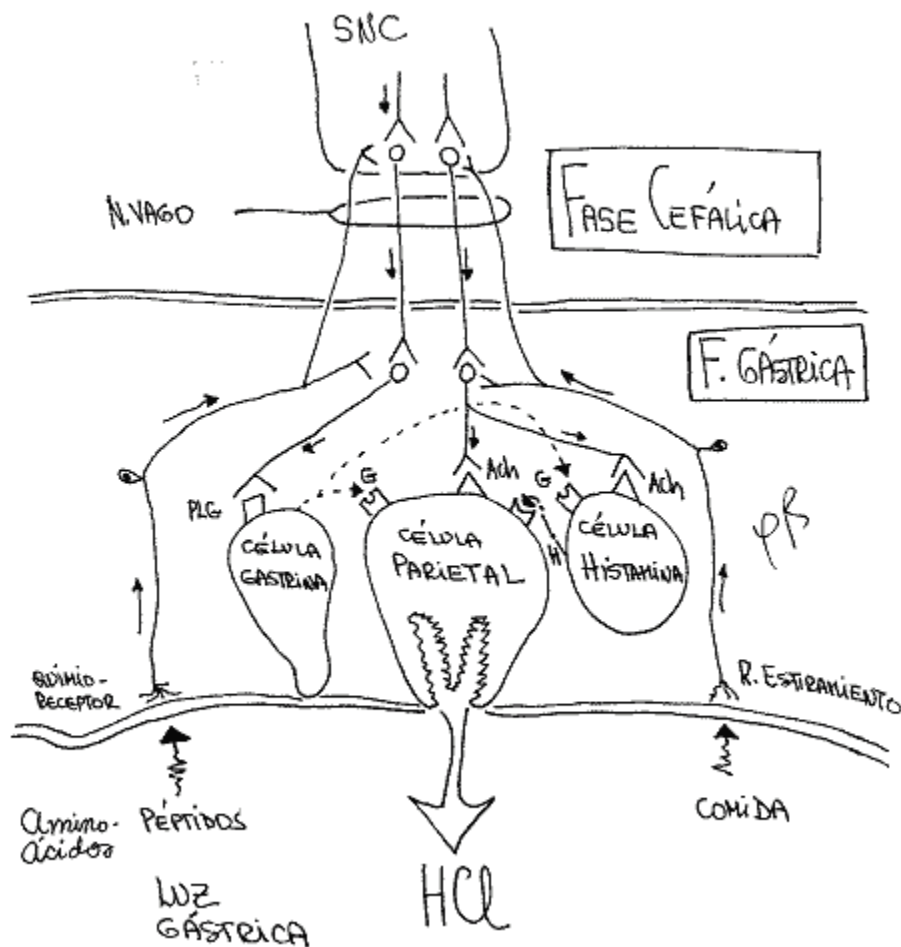 SNC
N.VAGO
FASE CEFÁLICA
F. GÁSTRICA
PLG
G
Ach
G
Ach
H
CÉLULA
GASTRINA
CÉLULA
PARIETAL
CÉLULA
HISTAMINA
QUÍMIO-
RECEPTOR
R. ESTIRAMIENTO
Amino-
ácidos
PÉPTIDOS
COMIDA
LUZ
GÁSTRICA
HCl